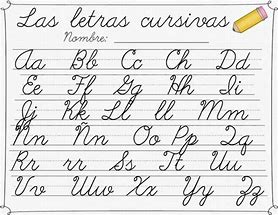 Las letras cursivas
Nombre:
Aa Bb Cc Ch Dd
Ee Ff Gg Hh Ii
Jj Kk Ll ll Mm
Nn Ññ Oo Pp Qq
Rr rr Ss Tt Uu
Vv Ww Xx Yy Zz